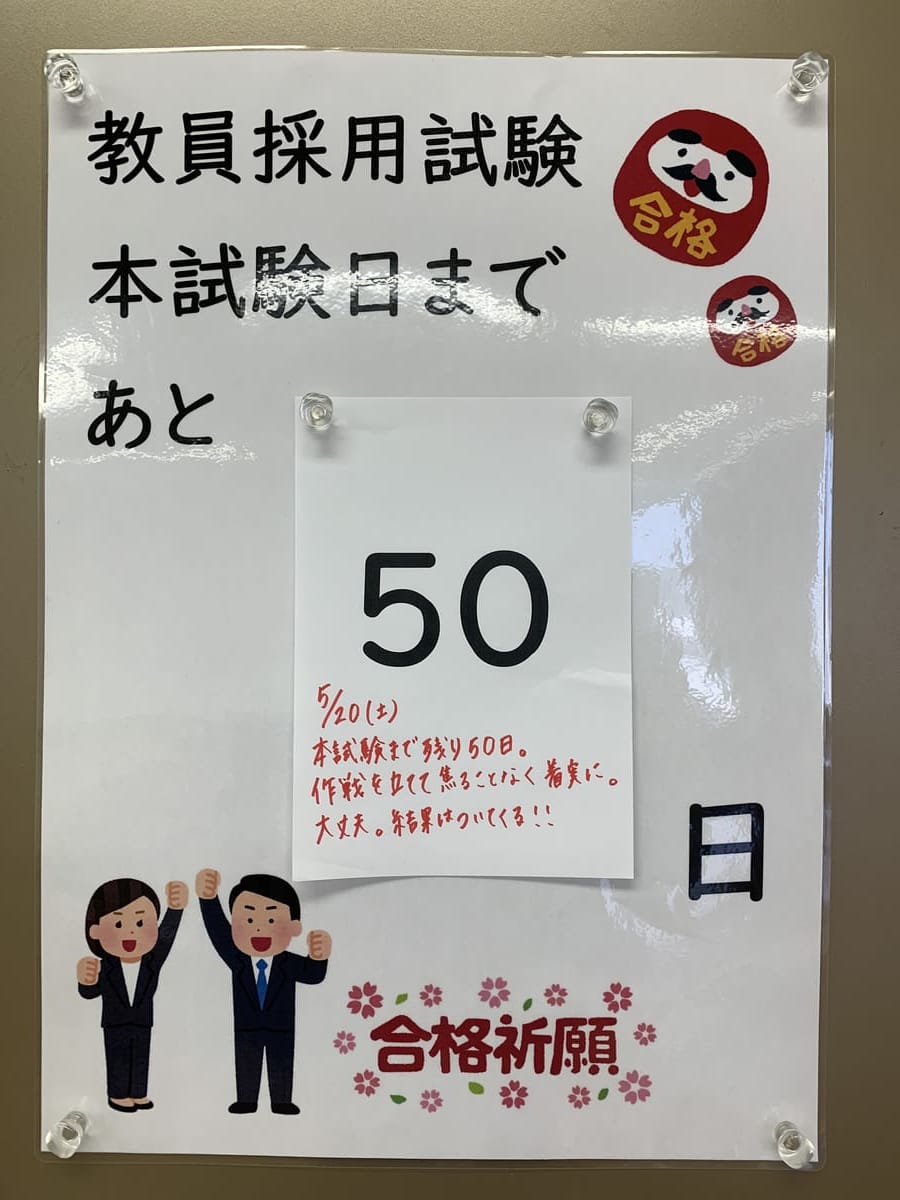 教員採用試験
合格
本試験日まで
合格
あと
50
5/20(土)
本試験まで残り50日。
作戦を立てて焦ることなく着実に。
大丈夫。結果はついてくる!!
日
合格祈願